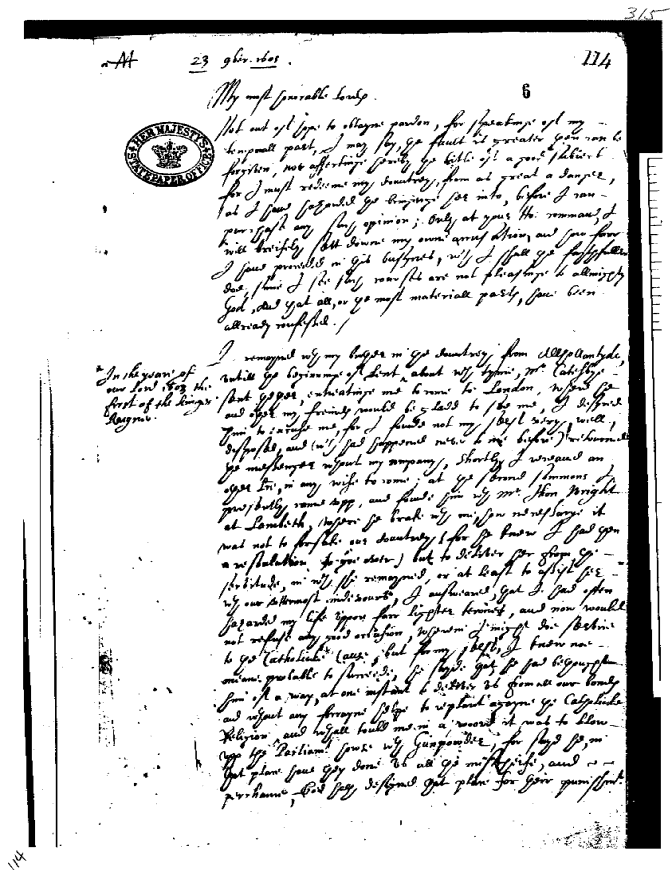 315
A1 23 9ber. 1605. 114
My most honorable Lords. 6
HER MAJESTY'S STATE PAPER OFFICE
Not out of hope to obtayne pardon, for speakinge of my
temporall part, I may say, ye fault is greater then can be
forgiven, nor affectinge hereby ye title of a good subiect
for I must redeeme my countrey, from as great a danger,
as I have hazarded ye bringinge her into, before I can
purchase any such opinion; Only at your Ho: command, I
will breifely sett downe my owne accusation, and how farr
I have proceded in this busynes, wch I shall ye faythfullier
doe, since I see such courses are not pleasinge to allmighty
God, and that all, or ye most materiall parts, have ben
allready confessed.
I remayned wth my brother in ye countrey, from Allhollantyde,
In the yeare of
our Lord 1603 the
first of the Kinges
Raigne.
untill ye beginninge of Lent, about wch tyme, Mr. Catesbye
sent thether, entreatinge me to come to London, where he
and other my friends would be gladd to see me, I desyred
him to excuse me, for I found not my self very well
disposed, and (wch had happened never to me before) returned
ye messenger without my company, Shortly I receaved an
other Lre, in any wise to come; at ye second sommons I
presently came upp, and found him wth Mr. Jhon Wright
at Lambeth, where he brake wth me, how necessarye it
was not to forsake our countrey (for he knew I had then
a resolution, to goe over) but to deliver her from ye
servitude, in wch she remayned, or at least to assist her
wth our uttermost endevours, I answeared, that I had often
hazarded my life uppon farr lighter termes, and now would
not refuse any good occasion, wherein I might doe service
to ye Catholicke Cause, but for my self, I knew noe
meane probable to succeede, he sayde that he had bethought
him of a way, at one instant to deliver us from all our bonds
and without any forrayne helpe to replant agayne ye Catholicke
Religion, and withall tould me in a worde it was to blow
upp the Parliamt howse wth Gunpowder, for sayd he, in
that place have they done us all ye mischeife, and
perchance, God hath desygned that place for their punishmt.
114